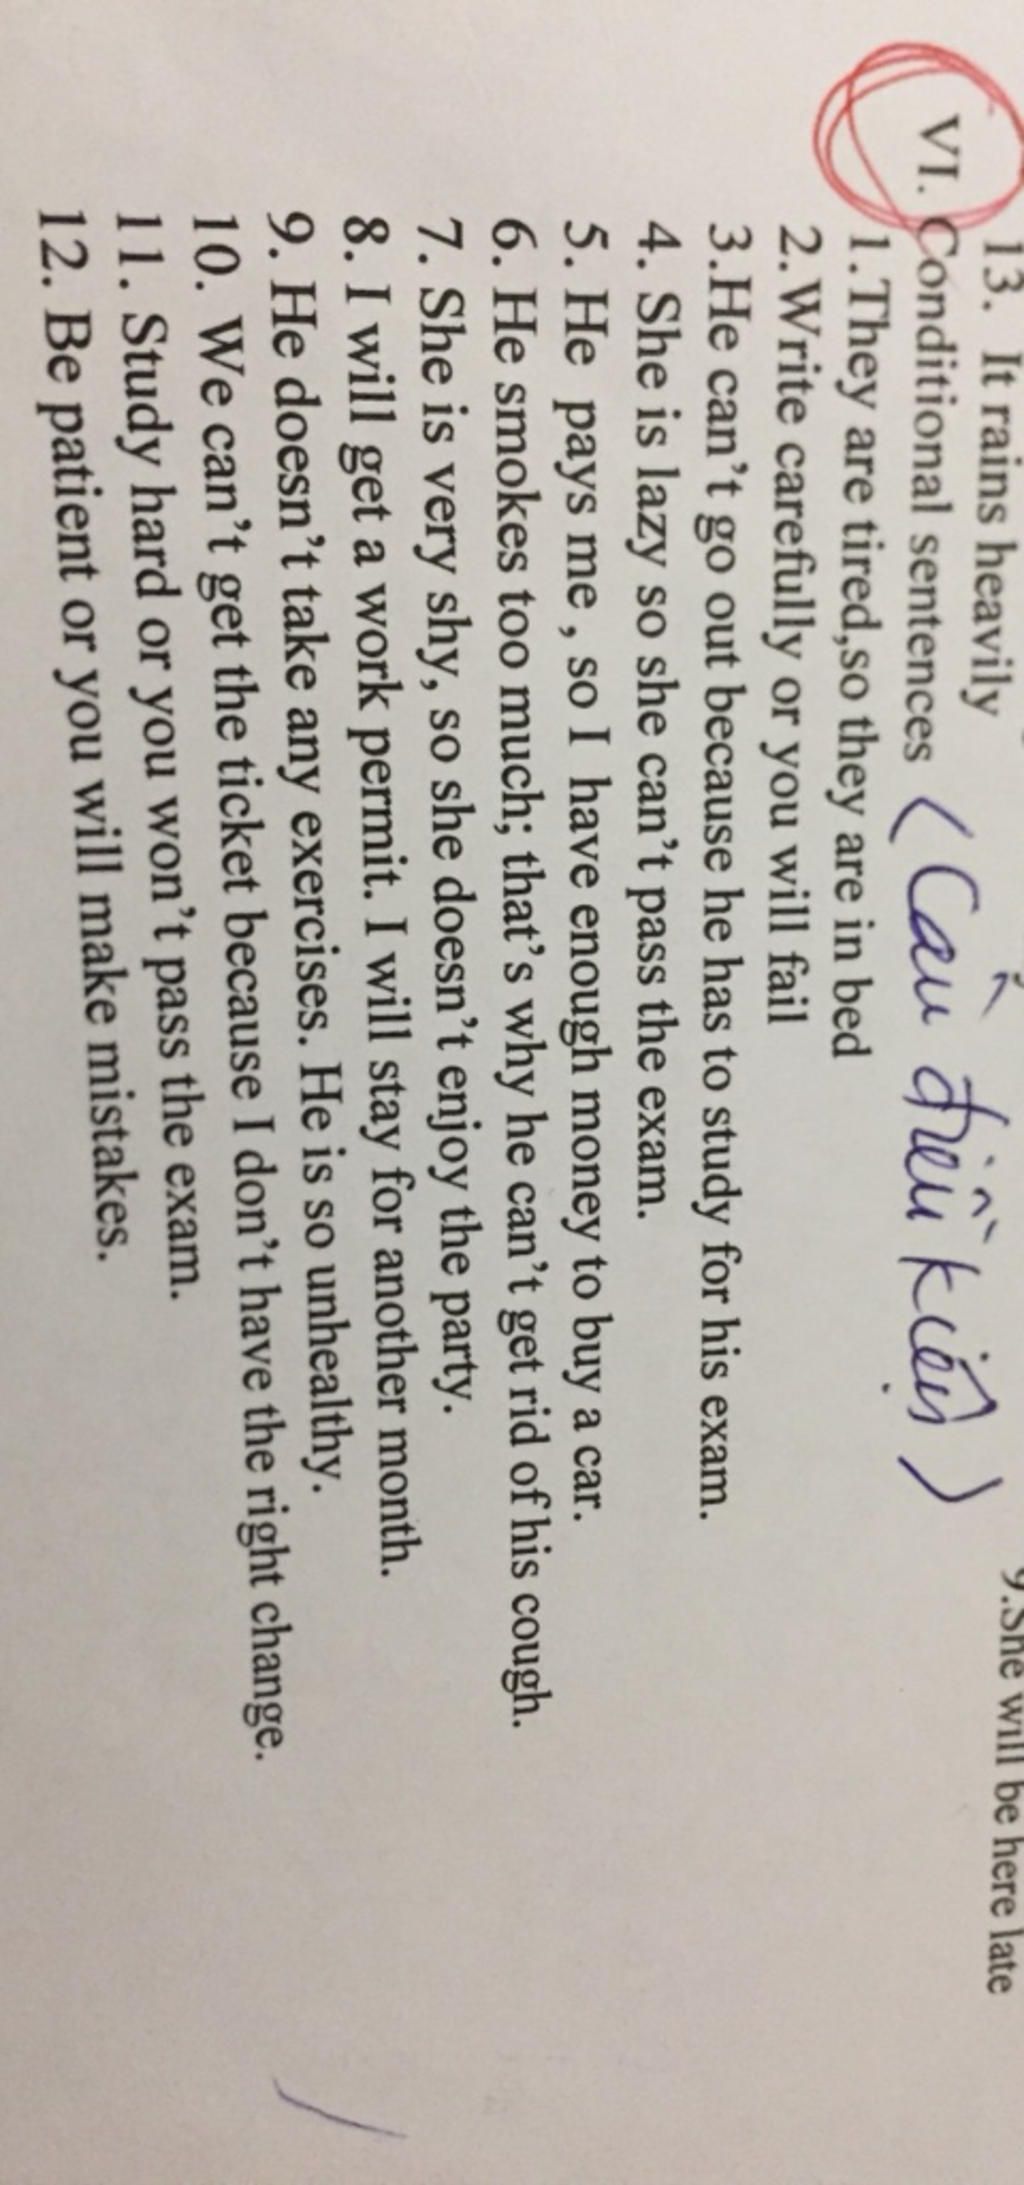 13. It rains heavily
9.She will be here late
VI. Conditional sentences (Câu điều kiện)
1.They are tired,so they are in bed
2.Write carefully or you will fail
3.He can't go out because he has to study for his exam.
4. She is lazy so she can't pass the exam.
5. He pays me , so I have enough money to buy a car.
6. He smokes too much; that's why he can't get rid of his cough.
7. She is very shy, so she doesn't enjoy the party.
8. I will get a work permit. I will stay for another month.
9. He doesn't take any exercises. He is so unhealthy.
10. We can't get the ticket because I don't have the right change.
11. Study hard or you won't pass the exam.
12. Be patient or you will make mistakes.